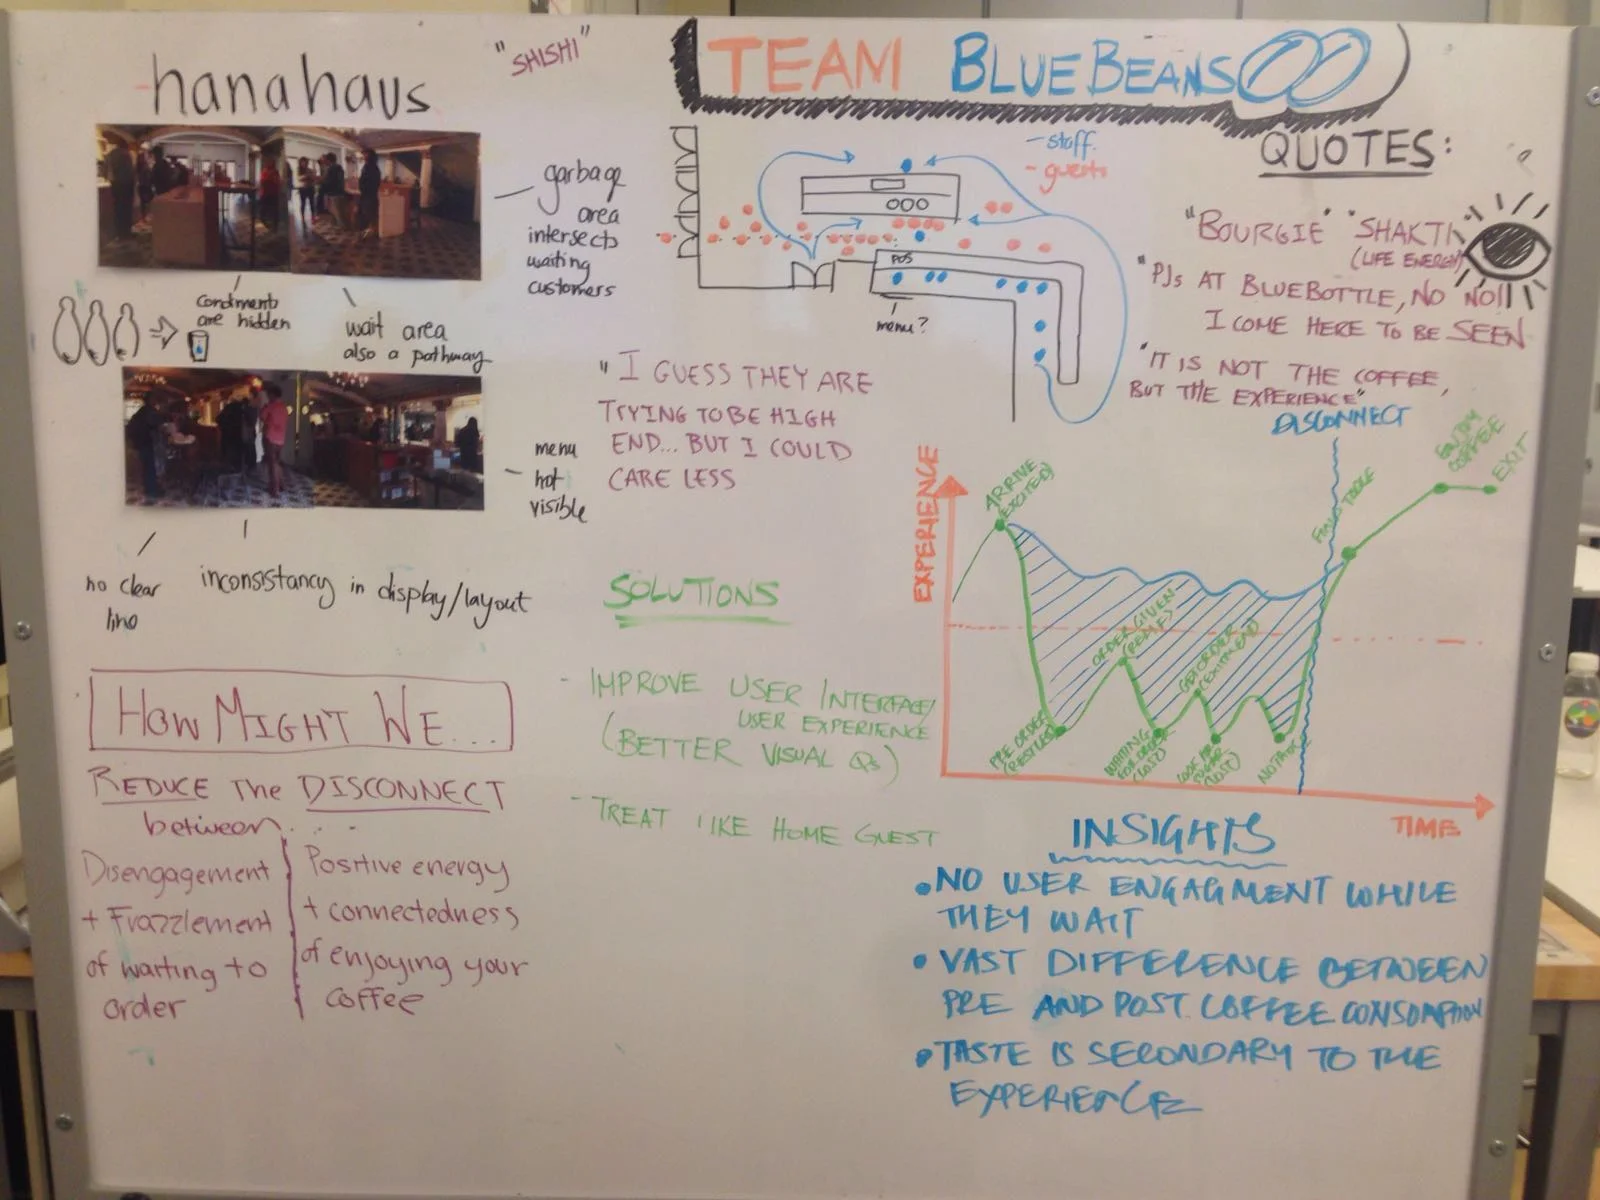 hanahaus
"SHISHI"
TEAM BLUEBEANS
garbage
area
intersects
waiting
customers
condiments
are hidden
wait area
also a pathway
menu
not
visible
no clear
line
inconsistancy in display/layout
- staff.
- guests
POS
menu?
QUOTES:
"BOURGIE" "SHAKTI"
(LIFE ENERGY)
"PJs AT BLUEBOTTLE, NO NO!!
I COME HERE TO BE SEEN
"IT IS NOT THE COFFEE,
BUT THE EXPERIENCE"
"I GUESS THEY ARE
TRYING TO BE HIGH
END... BUT I COULD
CARE LESS
DISCONNECT
EXPERIENCE
ARRIVE
(EXCITED)
PRE ORDER
(RESTLESS)
ORDER GIVEN
(RELIEF)
WAITING
FOR ORDER
(LOST)
GET ORDER
(EXITEMEND)
LOOK FOR
SUGAR
(LOST)
NO TABLE
FIND TABLE
ENJOY
COFFEE
EXIT
TIME
SOLUTIONS
- IMPROVE USER INTERFACE/
USER EXPERIENCE
(BETTER VISUAL Qs)
- TREAT LIKE HOME GUEST
HOW MIGHT WE...
REDUCE THE DISCONNECT
between...
Disengagement
+ Frazzlement
of waiting to
order
Positive energy
+ connectedness
of enjoying your
coffee
INSIGHTS
• NO USER ENGAGMENT WHILE
THEY WAIT
• VAST DIFFERENCE BETWEEN
PRE AND POST COFFEE CONSOMPTION
• TASTE IS SECONDARY TO THE
EXPERIENCE